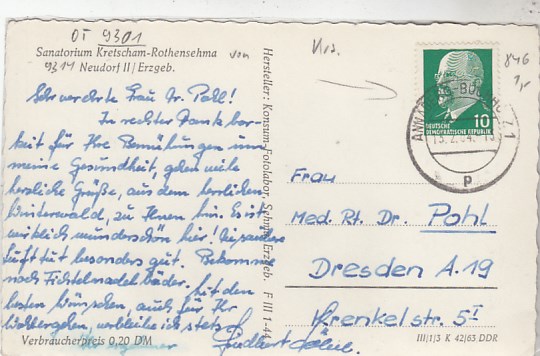 OT 9301
Sanatorium Kretscham-Rothensehma
9314 Neudorf II/Erzgeb.
von
Sehr verehrte Frau Dr. Pohl!
In rechter Dankbar-
keit für Ihre Bemühungen um
meine Gesundheit, gehen viele
herzliche Grüße, aus dem herrlichen
Winterwald, zu Ihnen hin. Es ist
wirklich wunderschön hier!
Luft tut besonders gut. Bekomme
noch Fichtelnadelbäder. Mit den
besten Wünschen, auch für Ihr
Wohlergehen, verbleibe ich stets
Verbraucherpreis 0,20 DM
Hersteller: Konsum-Fotolabor, Sehma/Erzgeb. F III 1-44
846
10
DEUTSCHE
DEMOKRATISCHE REPUBLIK
p
Frau
Med. Rt. Dr. Pohl
Dresden A.19
Krenkelstr. 5 I
III/1/3 K 42/63 DDR